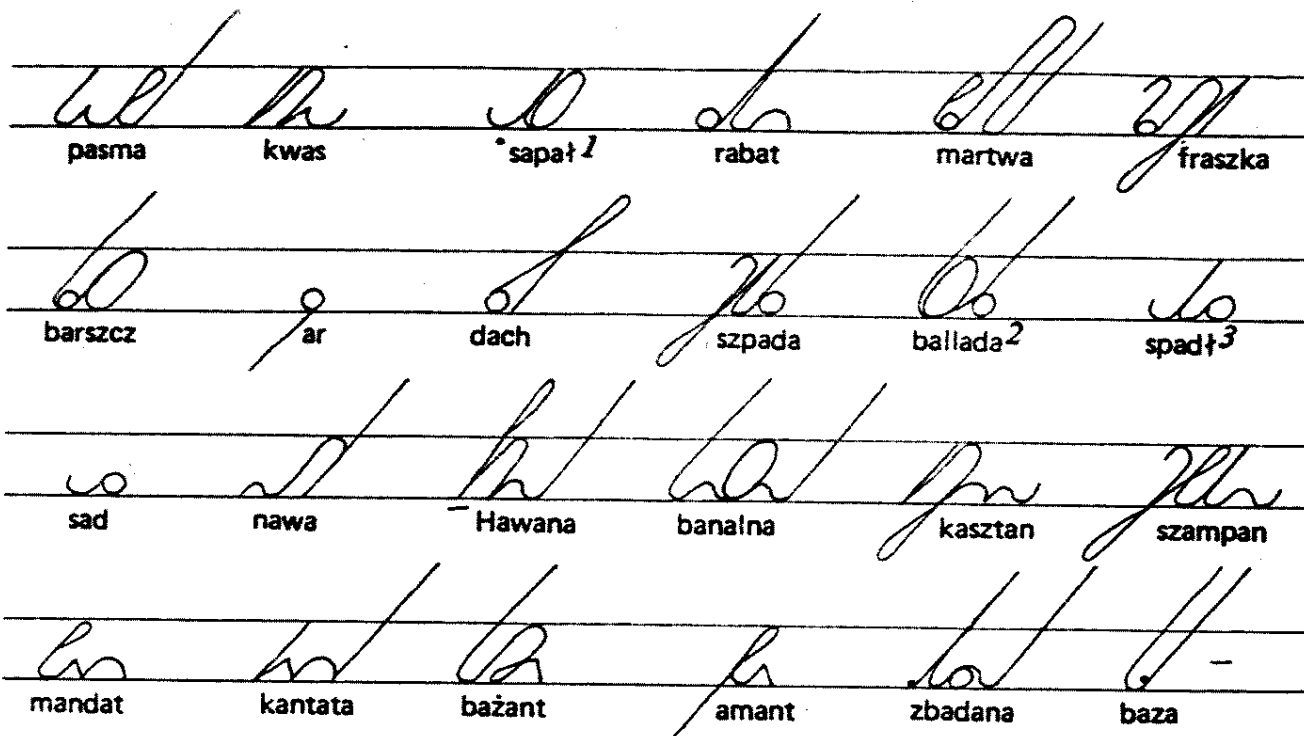 pasma kwas sapał 1 rabat martwa fraszka
barszcz ar dach szpada ballada 2 spadł 3
sad nawa Hawana banalna kasztan szampan
mandat kantata bażant amant zbadana baza